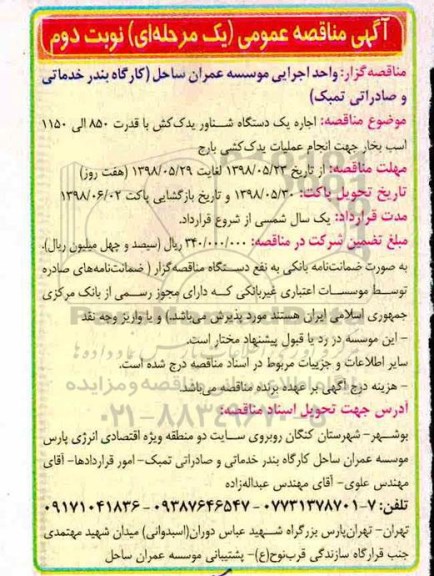 آگهی مناقصه عمومی (یک مرحله‌ای) نوبت دوم
مناقصه‌گزار: واحد اجرایی موسسه عمران ساحل (کارگاه بندر خدماتی
و صادراتی تمبک)
موضوع مناقصه: اجاره یک دستگاه شناور یدک‌کش با قدرت ۸۵۰ الی ۱۱۵۰
اسب بخار جهت انجام عملیات یدک‌کشی بارج
مهلت مناقصه: از تاریخ ۱۳۹۸/۰۵/۲۳ لغایت ۱۳۹۸/۰۵/۲۹ (هفت روز)
تاریخ تحویل پاکت: ۱۳۹۸/۰۵/۳۰ و تاریخ بازگشایی پاکت ۱۳۹۸/۰۶/۰۲
مدت قرارداد: یک سال شمسی از شروع قرارداد.
مبلغ تضمین شرکت در مناقصه: ۳۴۰/۰۰۰/۰۰۰ ریال (سیصد و چهل میلیون ریال).
به صورت ضمانت‌نامه بانکی به نفع دستگاه مناقصه‌گزار ( ضمانت‌نامه‌های صادره
توسط موسسات اعتباری غیربانکی که دارای مجوز رسمی از بانک مرکزی
جمهوری اسلامی ایران هستند مورد پذیرش می‌باشد.) و یا واریز وجه نقد
- این موسسه در رد یا قبول پیشنهاد مختار است.
سایر اطلاعات و جزییات مربوط در اسناد مناقصه درج شده است.
- هزینه درج آگهی بر عهده برنده مناقصه می‌باشد.
آدرس جهت تحویل اسناد مناقصه:
بوشهر- شهرستان کنگان روبروی سایت دو منطقه ویژه اقتصادی انرژی پارس
موسسه عمران ساحل کارگاه بندر خدماتی و صادراتی تمبک- امور قراردادها- آقای
مهندس علوی- آقای مهندس عبداله‌زاده
تلفن: ۷-۰۷۷۳۱۳۷۸۷۰۱ - ۰۹۳۸۷۶۴۶۵۴۷ - ۰۹۱۷۱۰۴۱۸۳۶
تهران- تهران‌پارس بزرگراه شهید عباس دوران(اسبدوانی) میدان شهید مهتمدی
جنب قرارگاه سازندگی قرب‌نوح(ع)- پشتیبانی موسسه عمران ساحل